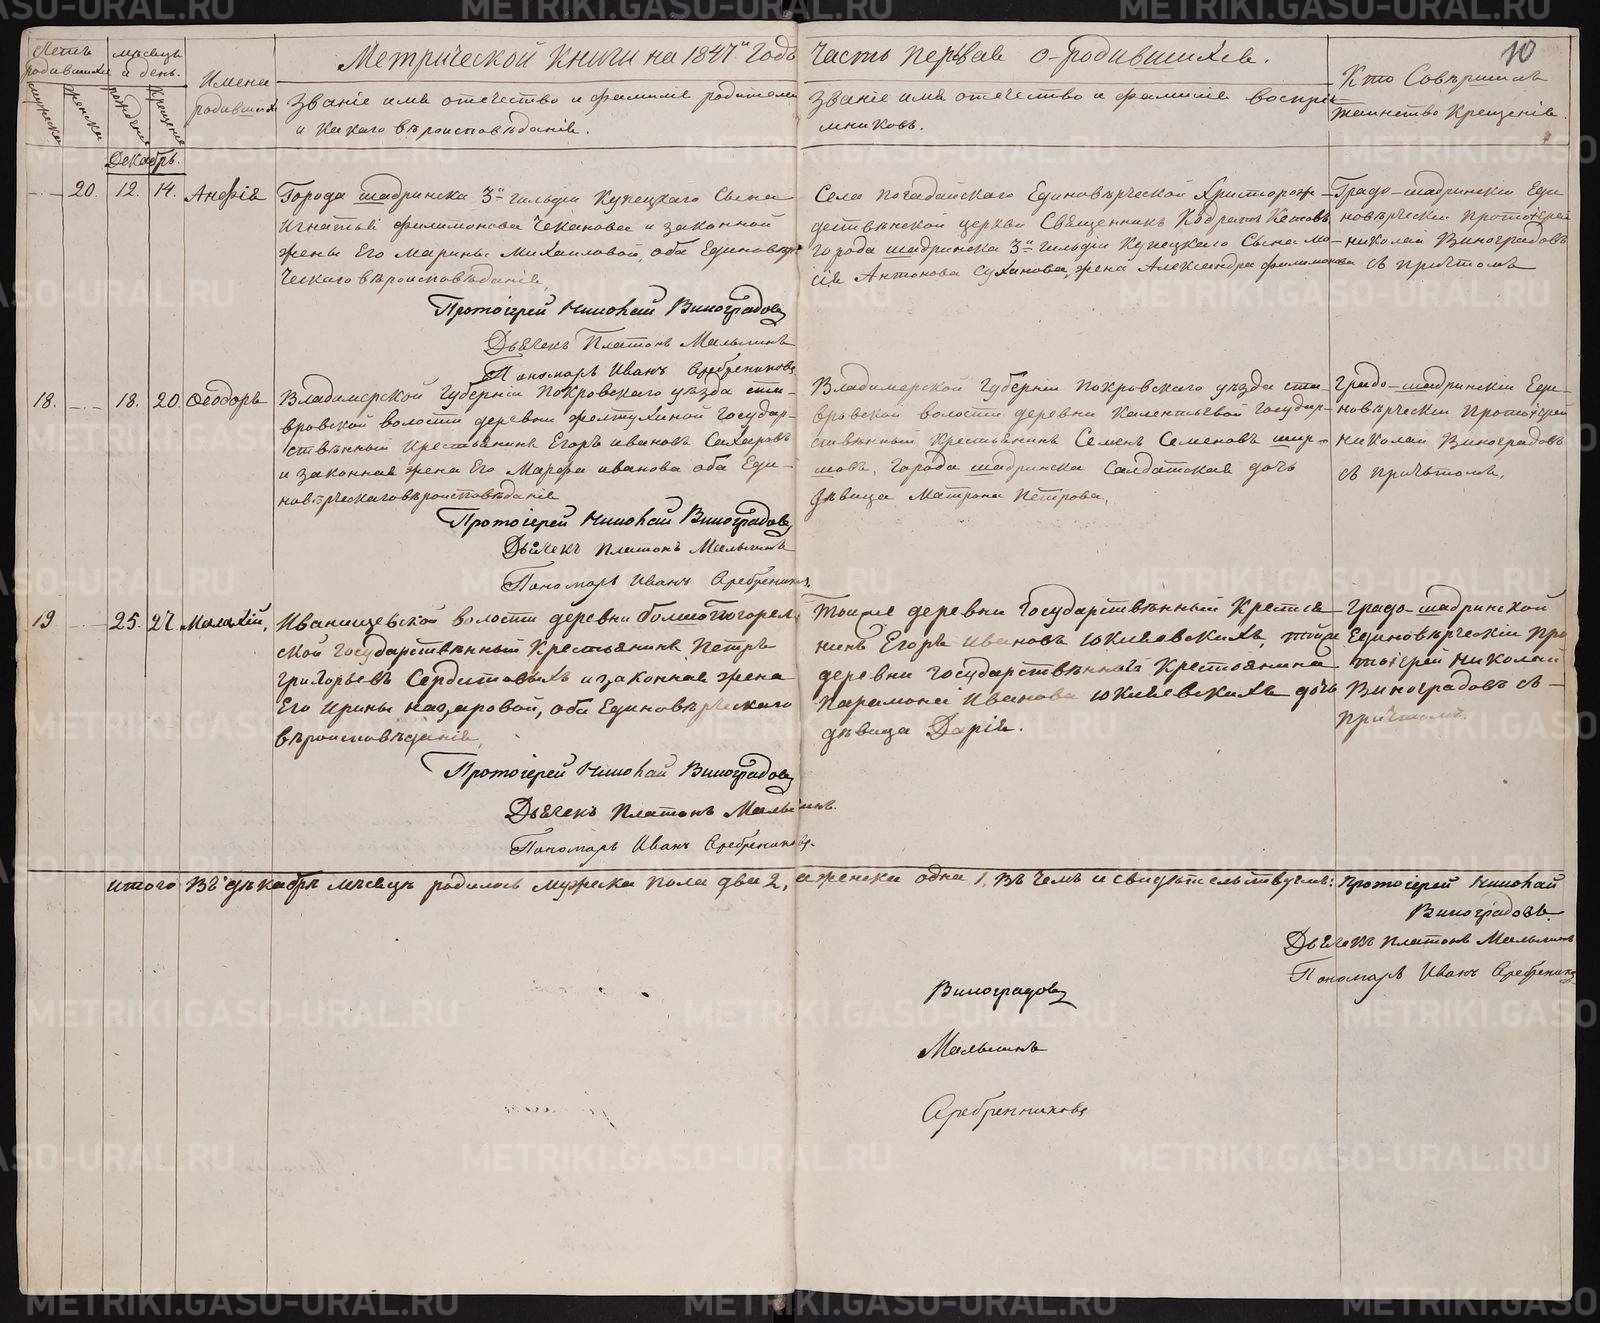 Метрической книги на 1847й годъ часть первая о родившихся.
10
Летъ родившихся
мужеска
женска
мѣсяцъ и день.
рожденiя
крещенiя
Имена родившихся
Званiе имя отечество и фамилiя родителей
и какаго вѣроисповѣданiя.
Званiе имя отечество и фамилiя воспрiемниковъ.
Кто Совершалъ
таинство Крещенiя.
Декабрь.
20. 12. 14. Анфiя
Города шадринска 3й гильдiи Купецкаго Сына
Игнатья филимонова Чеканова и законной
жены Его Марины Михаиловой, оба Единовѣрческаго вѣроисповѣданiя
Протоiерей Николай Виноградовъ
Дьячекъ Платонъ Малышинъ
Пономарь Иванъ Серебрениковъ
Села Погадайскаго Единовѣрческой Христорождественской церкви Священникъ
города шадринска 3й гильдiи Купецкаго Сына Мосiя Антонова Суханова, жена Александра филимонова
Градо-шадринскiй Единовѣрческiй Протоiерей
николай Виноградовъ
съ причтомъ
18. 18. 20. Феодоръ
Владимерской Губернiи Покровскаго уѣзда
волости деревни государственный Крестьянинъ Егоръ ивановъ Сахаровъ
и законная жена Его Марфа иванова оба Единовѣрческаго вѣроисповѣданiя
Протоiерей Николай Виноградовъ
Дьячекъ Платонъ Малышинъ
Пономарь Иванъ Серебрениковъ.
Владимерской Губернiи Покровскаго уѣзда
волости деревни государственный Крестьянинъ Семенъ Семеновъ
города шадринска Салдатская дочь
дѣвица Матрона Петрова,
градо-шадринскiй Единовѣрческiй Протоiерей
николай Виноградовъ
съ причтомъ,
19 25. 27. Малахiй,
Иванищевской волости деревни
государственный Крестьянинъ Петръ
григорьевъ Сердитовыхъ и законная жена
Его Ирина назаровой, оба Единовѣрческаго
вѣроисповѣданiя,
Протоiерей Николай Виноградовъ
Дьячекъ Платонъ Малышинъ.
Пономарь Иванъ Серебрениковъ.
Тоиже деревни государственный Крестьянинъ Егоръ Ивановъ Юкляевскихъ, тоиже
деревни государственнаго Крестьянина
Парамона Иванова Юкляевскихъ дочь
дѣвица Дарiя.
градо-шадринской
Единовѣрческiй Протоiерей Николай
Виноградовъ съ
причтомъ.
итого въ декабрѣ мѣсяцѣ родилось мужеска пола два 2, а женска одна 1, въ чемъ и свидѣтельствуемъ: Протоiерей Николай
Виноградовъ.
Дьячекъ Платонъ Малышинъ
Пономарь Иванъ Серебрениковъ
Виноградовъ
Малышинъ
Серебренниковъ
METRIKI.GASO-URAL.RU